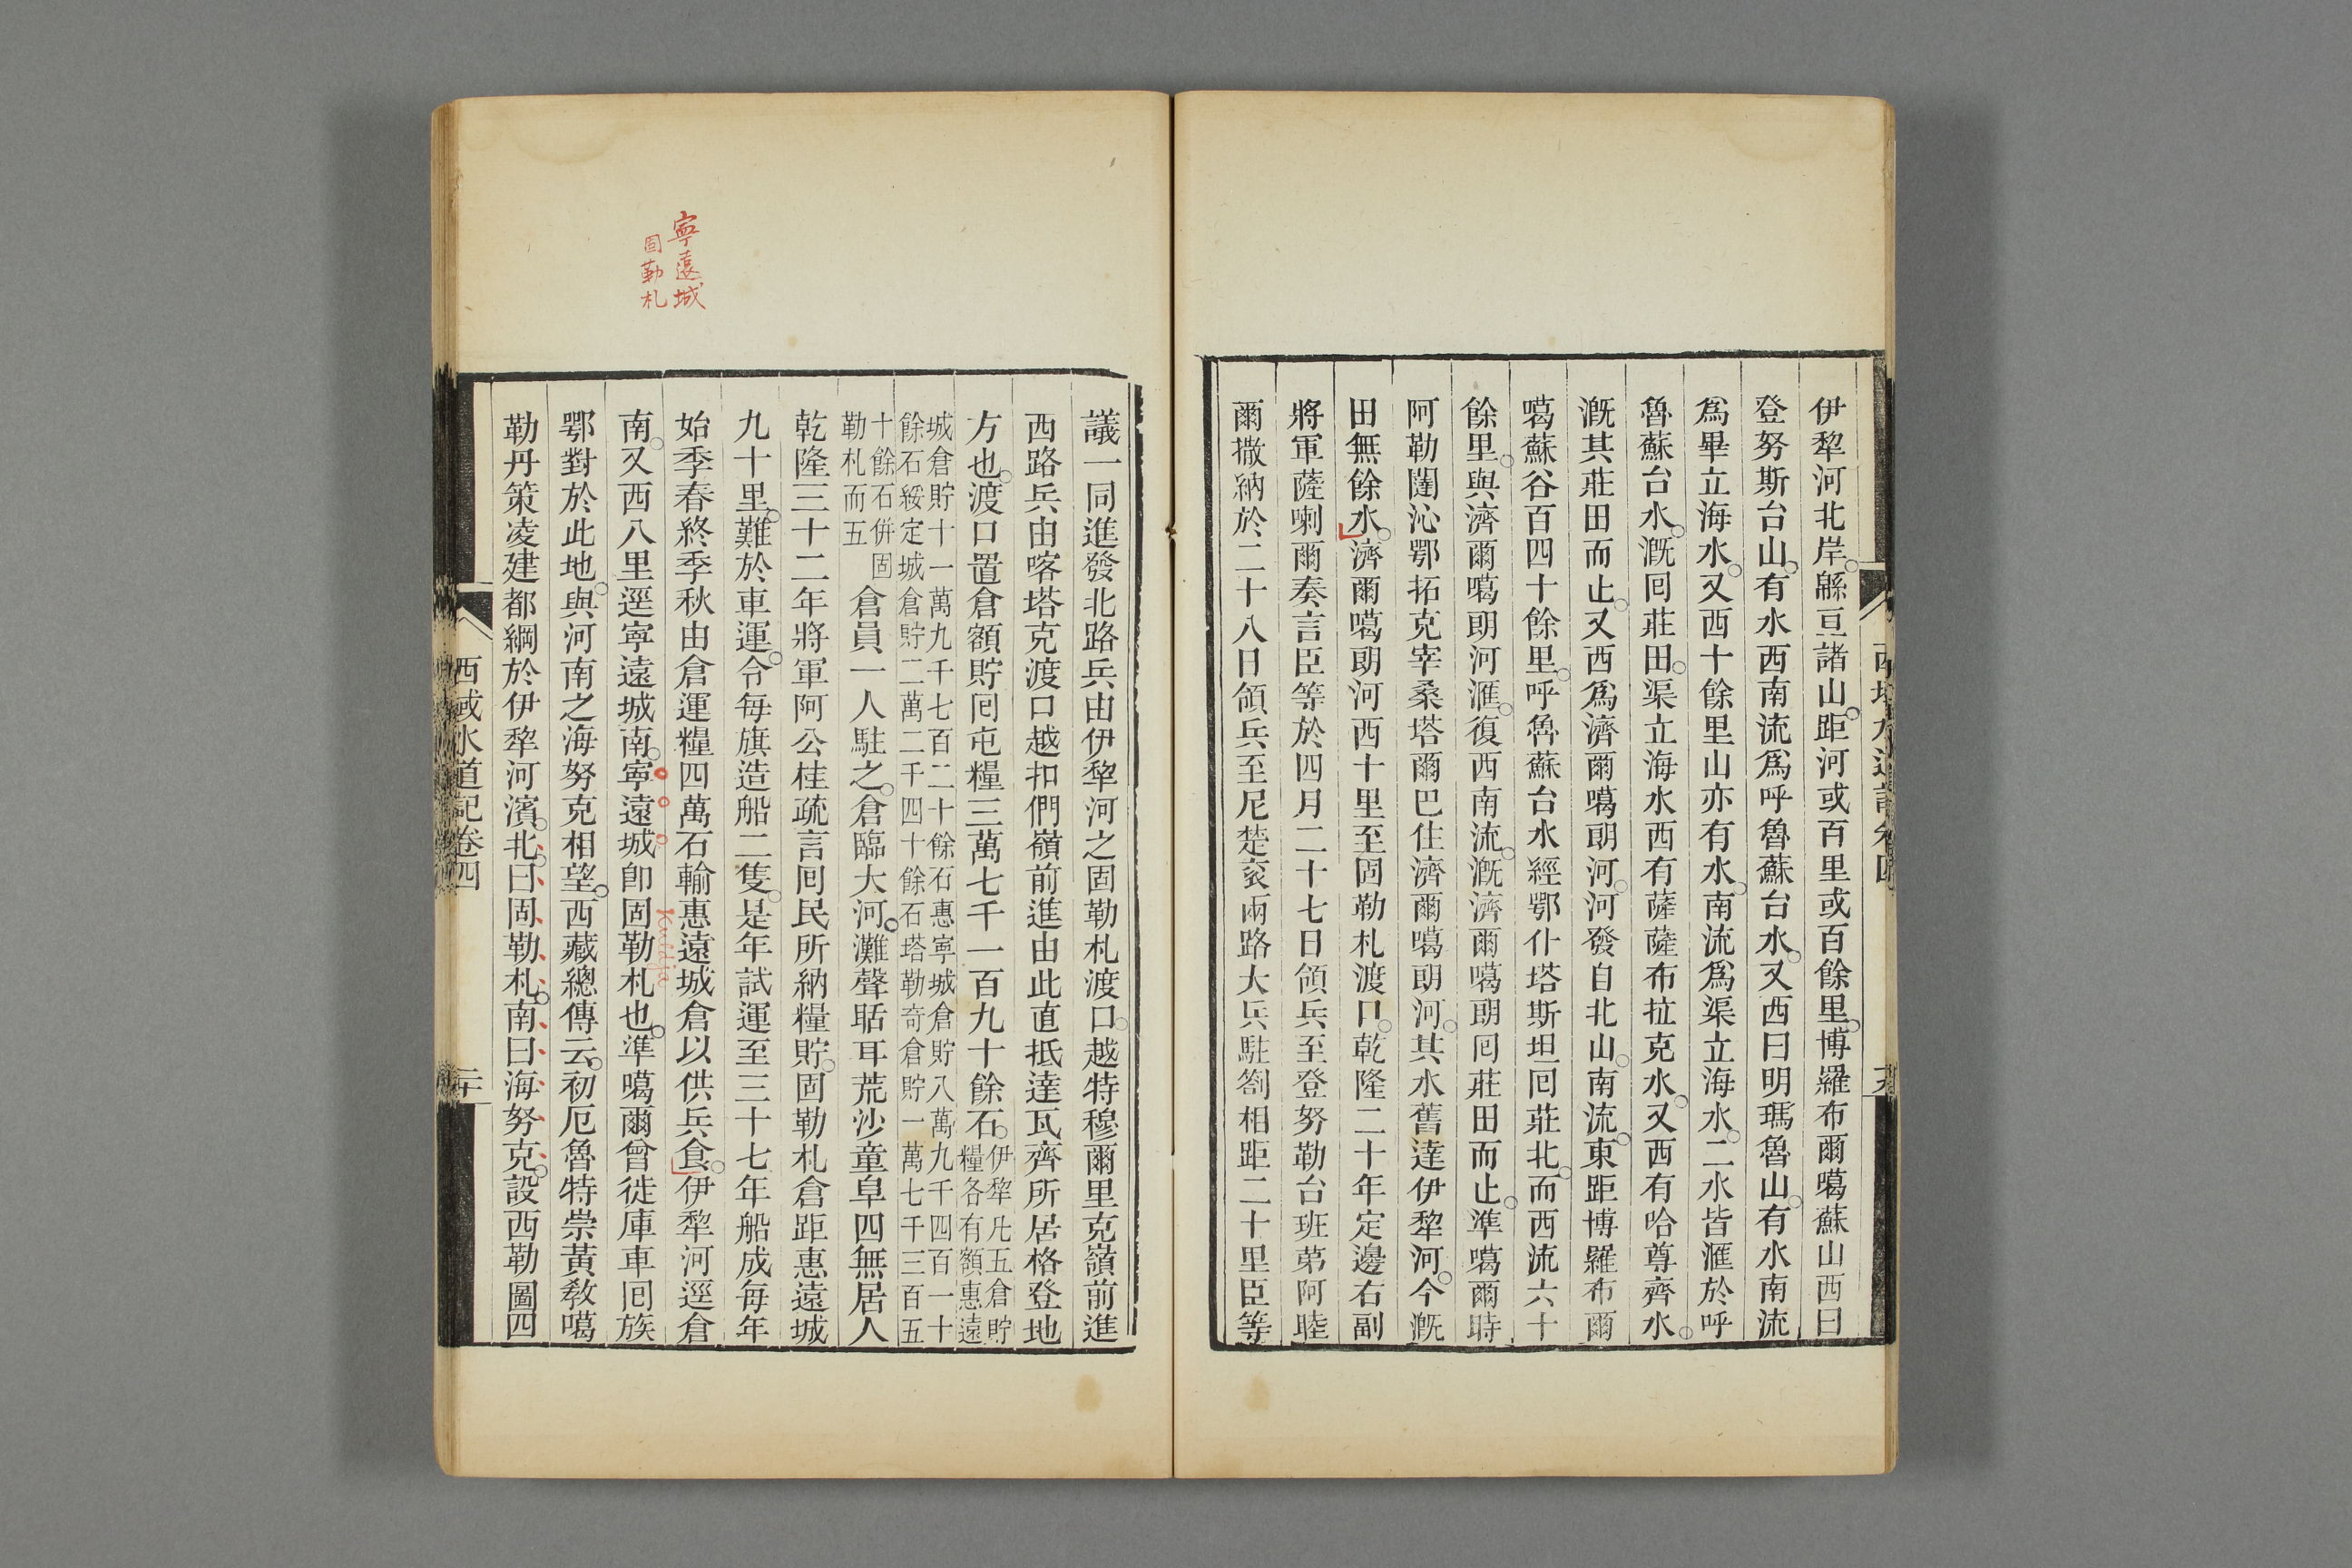 伊犂河北岸緜亘諸山距河或百里或百餘里博羅布爾噶蘇山西曰
登努斯台山有水西南流爲呼魯蘇台水又西曰明瑪魯山有水南流
爲畢立海水又西十餘里山亦有水南流爲渠立海水二水皆滙於呼
魯蘇台水漑囘莊田渠立海水西有薩薩布拉克水又西有哈尊齊水
漑其莊田而止又西爲濟爾噶朗河河發自北山南流東距博羅布爾
噶蘇谷百四十餘里呼魯蘇台水經鄂什塔斯坦囘莊北而西流六十
餘里與濟爾噶朗河滙復西南流漑濟爾噶朗囘莊田而止準噶爾時
阿勒闥沁鄂拓克宰桑塔爾巴住濟爾噶朗河其水舊達伊犂河今漑
田無餘水濟爾噶朗河西十里至固勒札渡口乾隆二十年定邊右副
將軍薩喇爾奏言臣等於四月二十七日領兵至登努勒台班第阿睦
爾撒納於二十八日領兵至尼楚衮兩路大兵駐劄相距二十里臣等
議一同進發北路兵由伊犂河之固勒札渡口越特穆爾里克嶺前進
西路兵由喀塔克渡口越扣們嶺前進由此直抵達瓦齊所居格登地
方也渡口置倉額貯囘屯糧三萬七千一百九十餘石伊犂凡五倉貯
糧各有額惠遠
城倉貯十一萬九千七百二十餘石惠寧城倉貯八萬九千四百一十
餘石綏定城倉貯二萬二千四十餘石塔勒奇倉貯一萬七千三百五
十餘石併固
勒札而五
倉員一人駐之倉臨大河灘聲聒耳荒沙童阜四無居人
乾隆三十二年將軍阿公桂疏言囘民所納糧貯固勒札倉距惠遠城
九十里難於車運令每旗造船二隻是年試運至三十七年船成每年
始季春終季秋由倉運糧四萬石輸惠遠城倉以供兵食伊犂河逕倉
南又西八里逕寧遠城南寧遠城卽固勒札也準噶爾曾徙庫車囘族
鄂對於此地與河南之海努克相望西藏總傳云初厄魯特崇黃敎噶
勒丹策凌建都綱於伊犂河濱北曰固勒札南曰海努克設西勒圖四
西域水道記卷四
二十
寧遠城
固勒札
Kuldja